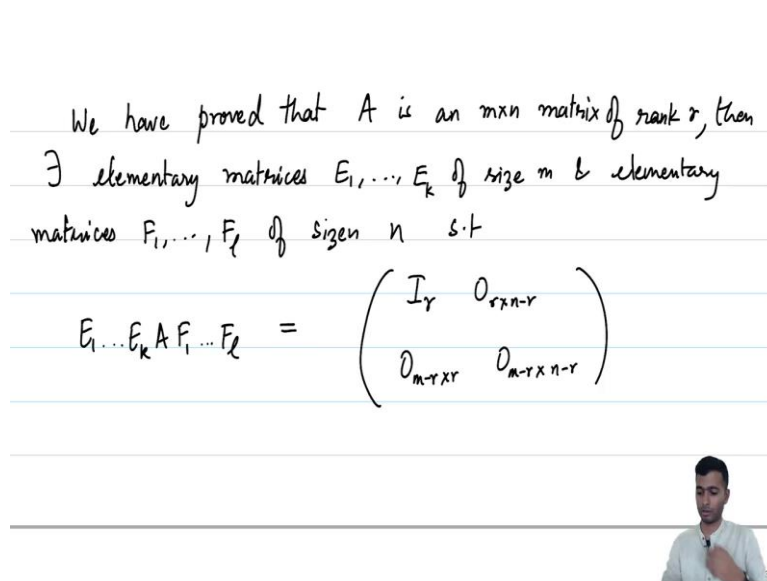 We have proved that A is an m×n matrix of rank r, then
∃ elementary matrices E₁, ..., Eₖ of size m & elementary
matrices F₁, ..., Fₗ of sizen n s.t
E₁ ... Eₖ A F₁ ... Fₗ = ( Iᵣ 0_{r×n-r}
0_{m-r×r} 0_{m-r×n-r} )